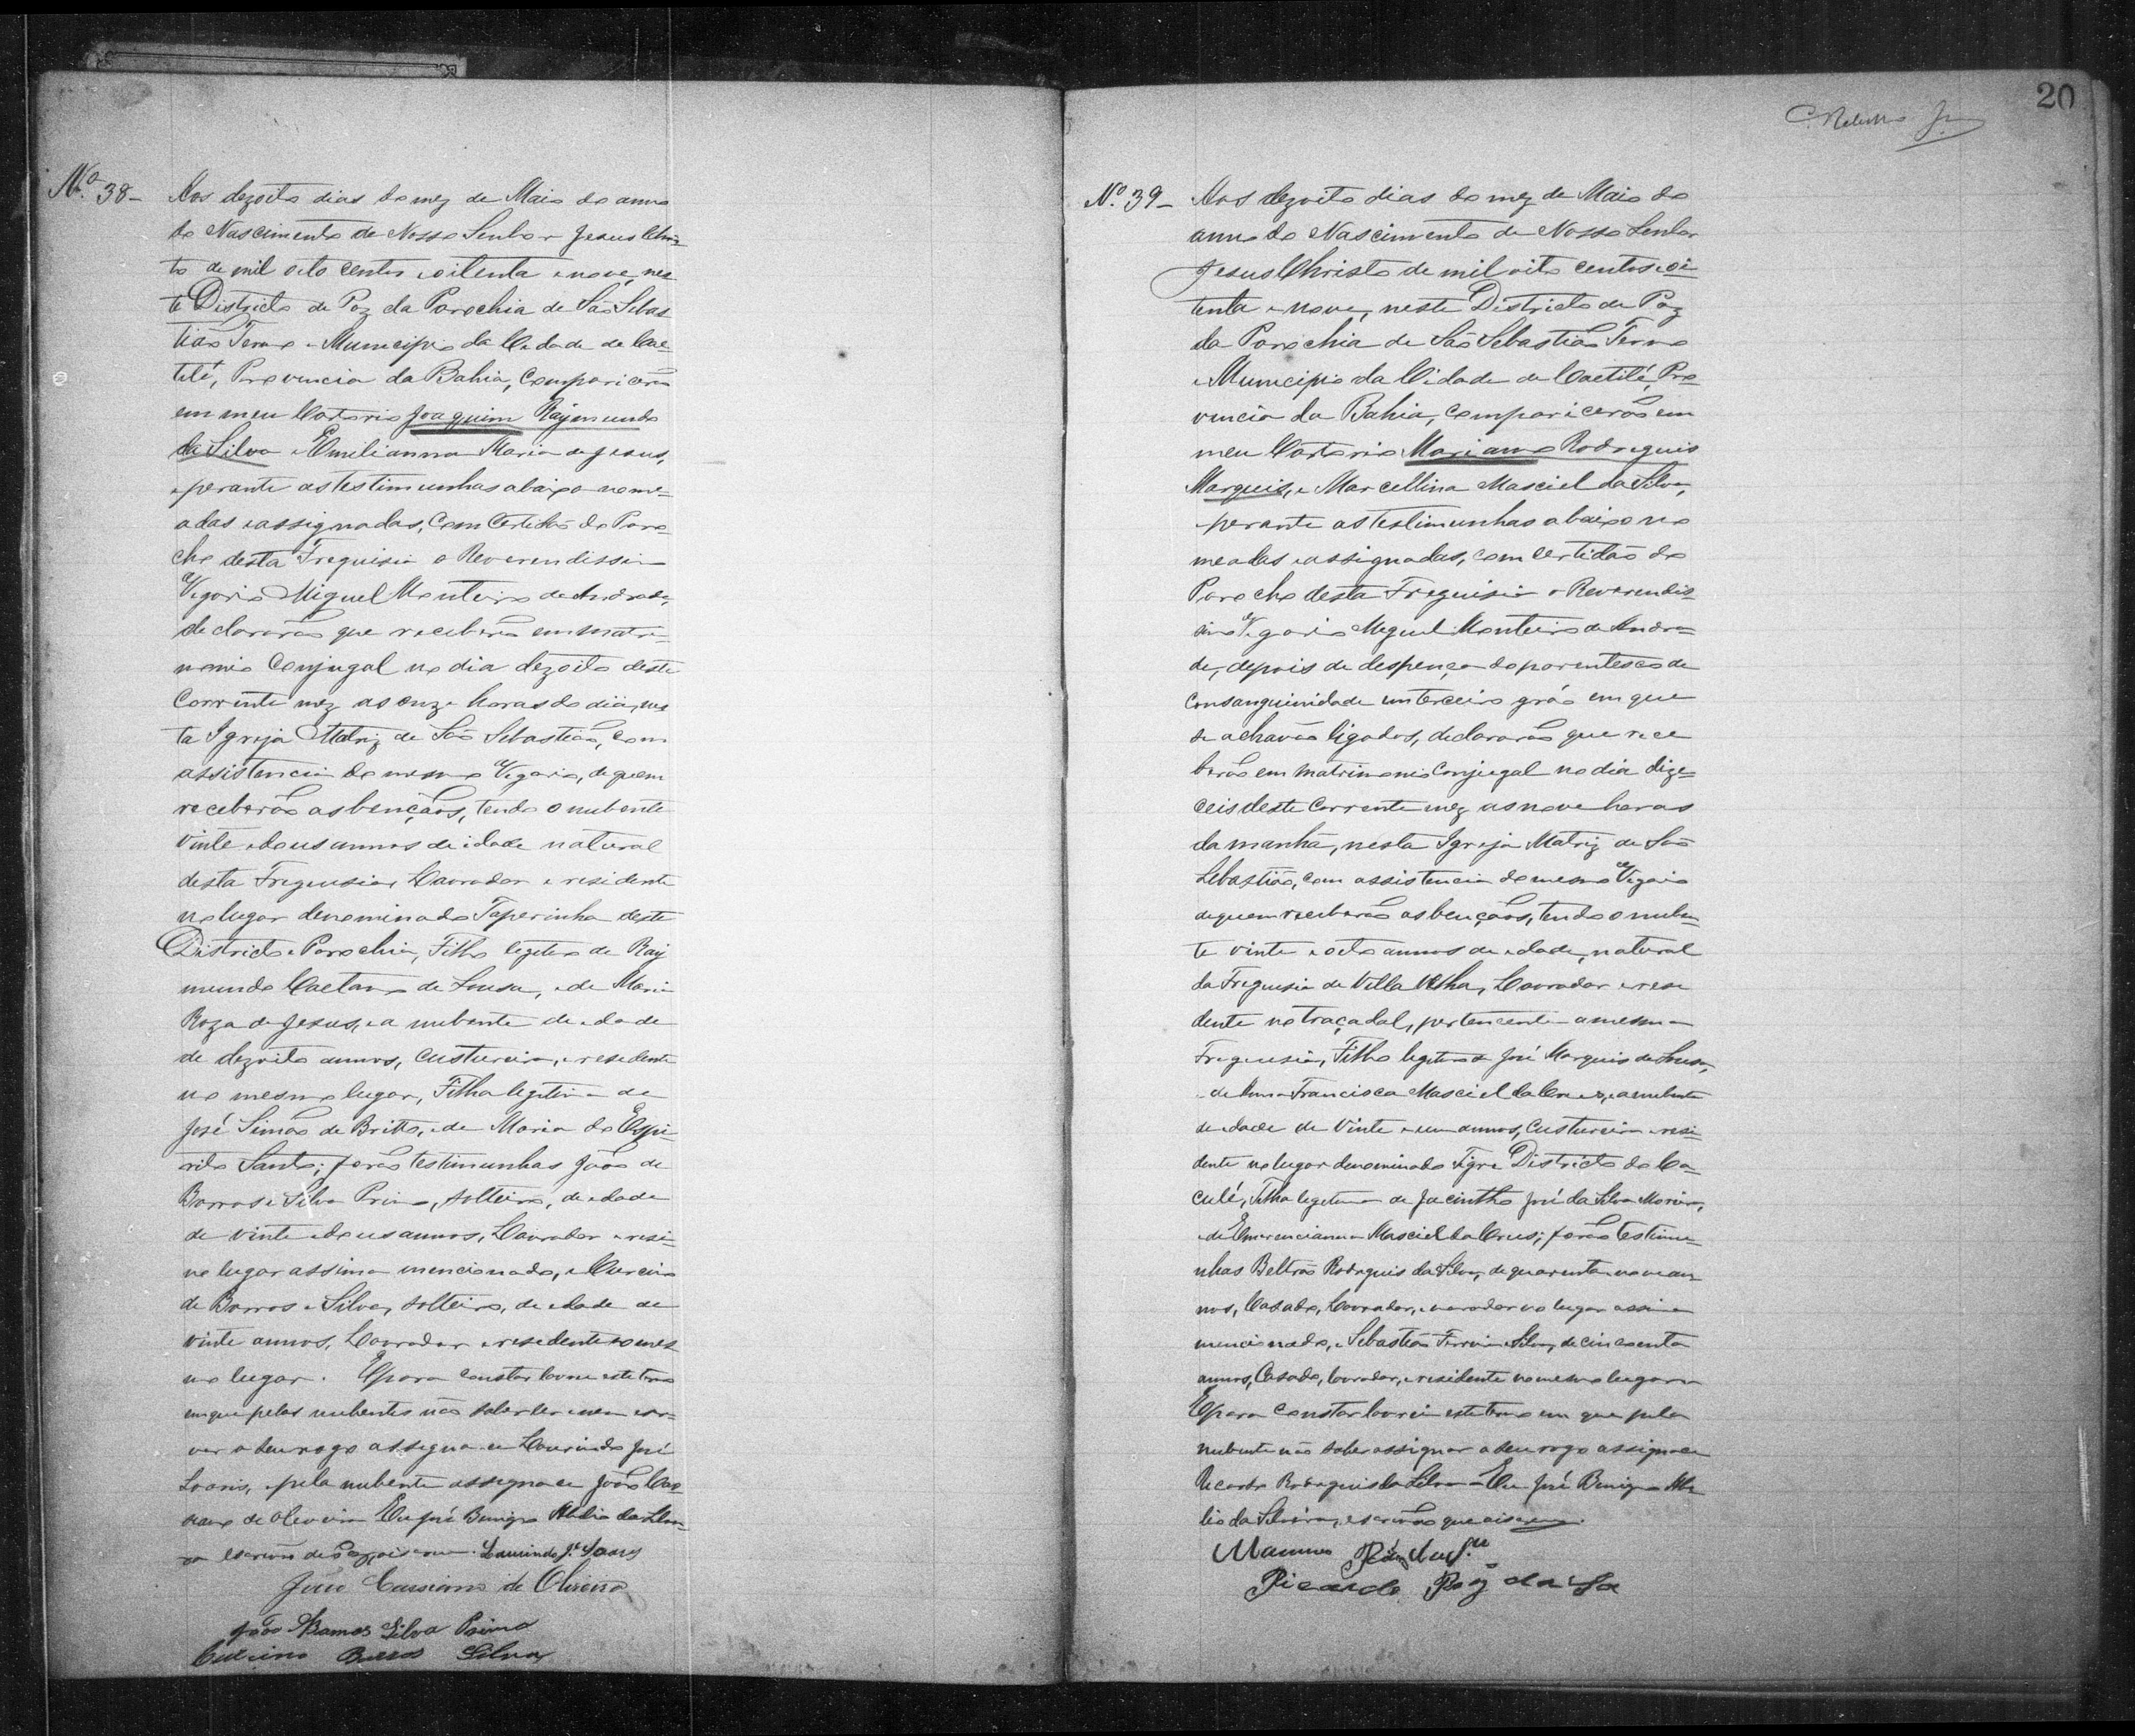 Nº 38-
Aos dezoito dias do mez de Maio do anno
do Nascimento de Nosso Senhor Jesus Chris-
to de mil oito centos e oitenta e nove, nes-
te Districto de Paz da Parochia de São Sebas-
tião Termo e Municipio da Cidade de Cae-
tité, Provincia da Bahia, comparicerão
em meu Cartorio Joaquim Raymundo
da Silva e Emilianna Maria de Jesus,
e perante as testimunhas abaixo nome-
adas e assignadas, com Certidão do Paro-
cho desta Freguisia o Reverendissimo
Vigario Miguel Monteiro de Andrade,
declararão que receberão em matri-
monio Conjugal no dia dezoito deste
Corrente mez as onze horas do dia, nes
ta Igreja Matriz de São Sebastião, com
assistencia do mesmo Vigario, de quem
receberão as bençãos, tendo o nubente
vinte e dous annos de idade natural
desta Freguesia, Lavrador e residente
no lugar denominado Taperinha deste
Districto e Parochia, Filho legitimo de Ray
mundo Caetano de Sousa, e de Maria
Roza de Jesus, e a nubente de edade
de dezoito annos, custureira, e residente
no mesmo lugar, Filha legitima de
José Simão de Britto, e de Maria do Espi-
rito Santo; forão testimunhas João de
Barros e Silva Primo, solteiro, de edade
de vinte e dous annos, Lavrador e resi-
no lugar assima mencionado, e
de Barros e Silva, solteiro, de edade de
vinte annos, Lavrador e residente no mes
mo lugar. E para constar lavrei este termo
em que pelos nubentes não saber ler e nem escre-
ver a seu rogo assigna-se Lourindo José
Soares, e pela nubente assigna-se João Cas
siano de Oliveira Eu José Benigno
escrivão de Paz, o iscrevi. Laurindo J.e Soares
João Cassiano de Oliveira
João Barros Silva Primo
Barros Silva
20
Nº 39-
Aos dezoito dias do mez de Maio do
anno do Nascimento de Nosso Senhor
Jesus Christo de mil oito centos e oi-
tenta e nove, neste Districto de Paz
da Parochia de São Sebastião Termo
e Municipio da Cidade de Caetité, Pro
vincia da Bahia, comparicerão em
meu Cartorio Mariano Rodreguis
Marquis, e Marcellina Masciel da Silva,
e perante as testimunhas abaixo no
meadas e assignadas, com certidão do
Parocho desta Freguisia o Reverendis-
simo Vigario Miguel Monteiro de Andra-
de, depois de despença do parentesco de
consanguinidade em terceiro gráo em que
se achavão ligados, declararão que rece
berão em matrimonio Conjugal no dia dize-
ceis deste Corrente mez as nove horas
da manhã, nesta Igreja Matriz de São
Sebastião, com assistencia do mesmo Vigario
de quem receberão as bençãos, tendo o nuben
te vinte e oito annos de edade, natural
da Freguisia de Villa Velha, Lavrador e resi
dente no traçadal, pertencente a mesma
Freguisia, Filho legitimo de José Marquis de Sousa,
e de Anna Francisca Masciel da Cruz, e a nubente
de edade de Vinte e um annos, custureira e resi-
dente no lugar denominado Tigre Districto do Ca-
culé, Filha legitima de Jacintho José da Silva
e de Emerencianna Masciel da Crus; forão testimu-
nhas Beltrão Rodrguis da Silva, de quarenta e nove an
nos, Casado, Lavrador, e morador no lugar assima
mencionado, e Sebastião Silva, de cincoenta
annos, Casado, lavrador, e residente no mesmo lugar
E para constar lavrei este termo em que pela
nubente não saber assignar a seu rogo assigna-se
Ricardo Rodreguis da Silva Eu José Benigno
escrivão que o iscrevi.
Ricardo Roz da Sa